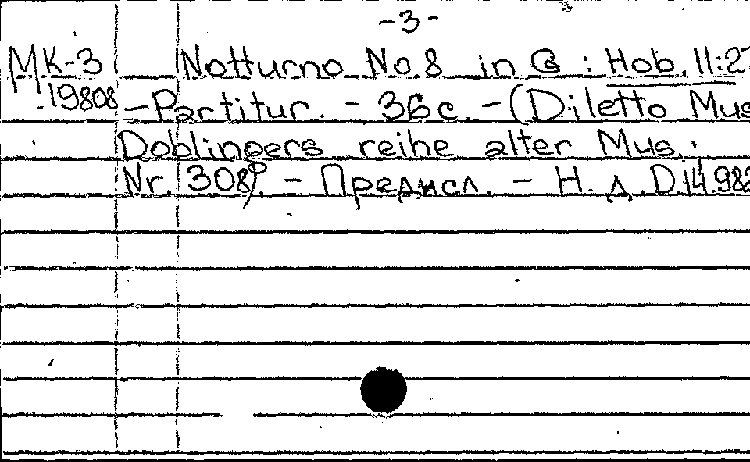 -3-
МК-3 Notturno No 8 in G : Hob. II:2
19808 -Partitur. - 36с. -(Diletto Mus
Doblingers reihe alter Mus.
Nr. 308). - Предисл. - Н. д. D.14.982